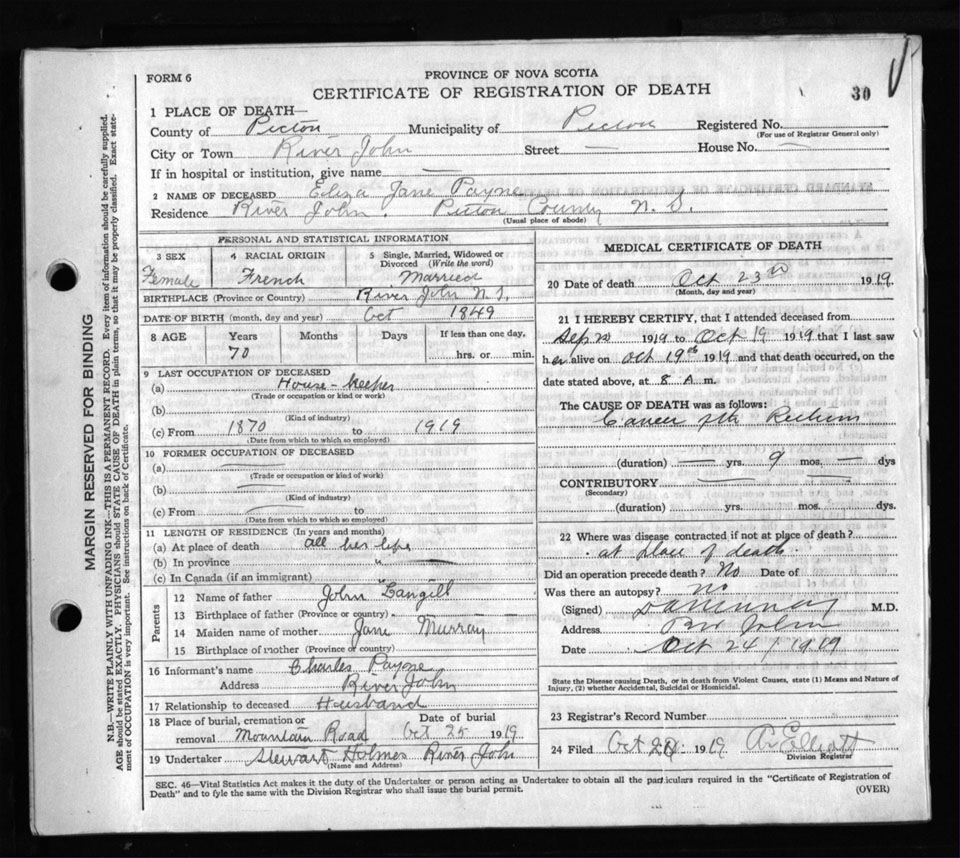 FORM 6
PROVINCE OF NOVA SCOTIA
CERTIFICATE OF REGISTRATION OF DEATH
30
1 PLACE OF DEATH—
County of Pictou Municipality of Pictou Registered No.
(For use of Registrar General only)
City or Town River John Street — House No. —
If in hospital or institution, give name —
2 NAME OF DECEASED Eliza Jane Payne
Residence River John. Pictou County N.S.
(Usual place of abode)
PERSONAL AND STATISTICAL INFORMATION
3 SEX
Female
4 RACIAL ORIGIN
French
5 Single, Married, Widowed or Divorced (Write the word)
Married
BIRTHPLACE (Province or Country) River John N.S.
DATE OF BIRTH (month, day and year) Oct 1849
8 AGE Years Months Days If less than one day,
70 hrs. or min.
9 LAST OCCUPATION OF DECEASED
(a) House-keeper
(Trade or occupation or kind or work)
(b)
(Kind of industry)
(c) From 1870 to 1919
(Date from which to which so employed)
10 FORMER OCCUPATION OF DECEASED
(a) —
(Trade or occupation or kind of work)
(b) —
(Kind of industry)
(c) From — to
(Date from which to which so employed)
11 LENGTH OF RESIDENCE (In years and months)
(a) At place of death all her life
(b) In province " —
(c) In Canada (if an immigrant)
Parents
12 Name of father John Langill
13 Birthplace of father (Province or country)
14 Maiden name of mother Jane Murray
15 Birthplace of mother (Province or country)
16 Informant's name Charles Payne
Address River John
17 Relationship to deceased Husband
18 Place of burial, cremation or removal Mountain Road
Date of burial
Oct 25 1919
19 Undertaker Stewart Holmes River John
(Name and Address)
MEDICAL CERTIFICATE OF DEATH
20 Date of death Oct 23rd 1919.
(Month, day and year)
21 I HEREBY CERTIFY, that I attended deceased from
Sep 1919 to Oct 19 1919 that I last saw
her alive on Oct 19th 1919 and that death occurred, on the
date stated above, at 8 A m.
The CAUSE OF DEATH was as follows:
Cancer of the Rectum
(duration) — yrs. 9 mos. — dys
CONTRIBUTORY —
(Secondary)
(duration) yrs. mos. dys.
22 Where was disease contracted if not at place of death?
at place of death.
Did an operation precede death? No Date of
Was there an autopsy? No
(Signed) M.D.
Address John
Date Oct 24/1919
State the Disease causing Death, or in death from Violent Causes, state (1) Means and Nature of
Injury, (2) whether Accidental, Suicidal or Homicidal.
23 Registrar's Record Number
24 Filed Oct 1919 Elliott
Division Registrar
SEC. 46—Vital Statistics Act makes it the duty of the Undertaker or person acting as Undertaker to obtain all the particulars required in the "Certificate of Registration of
Death" and to fyle the same with the Division Registrar who shall issue the burial permit.
(OVER)
MARGIN RESERVED FOR BINDING
N.B.—WRITE PLAINLY WITH UNFADING INK—THIS IS A PERMANENT RECORD. Every item of information should be carefully supplied.
AGE should be stated EXACTLY. PHYSICIANS should STATE CAUSE OF DEATH in plain terms, so that it may be properly classified. Exact statement of OCCUPATION is very important. See instructions on back of Certificate.